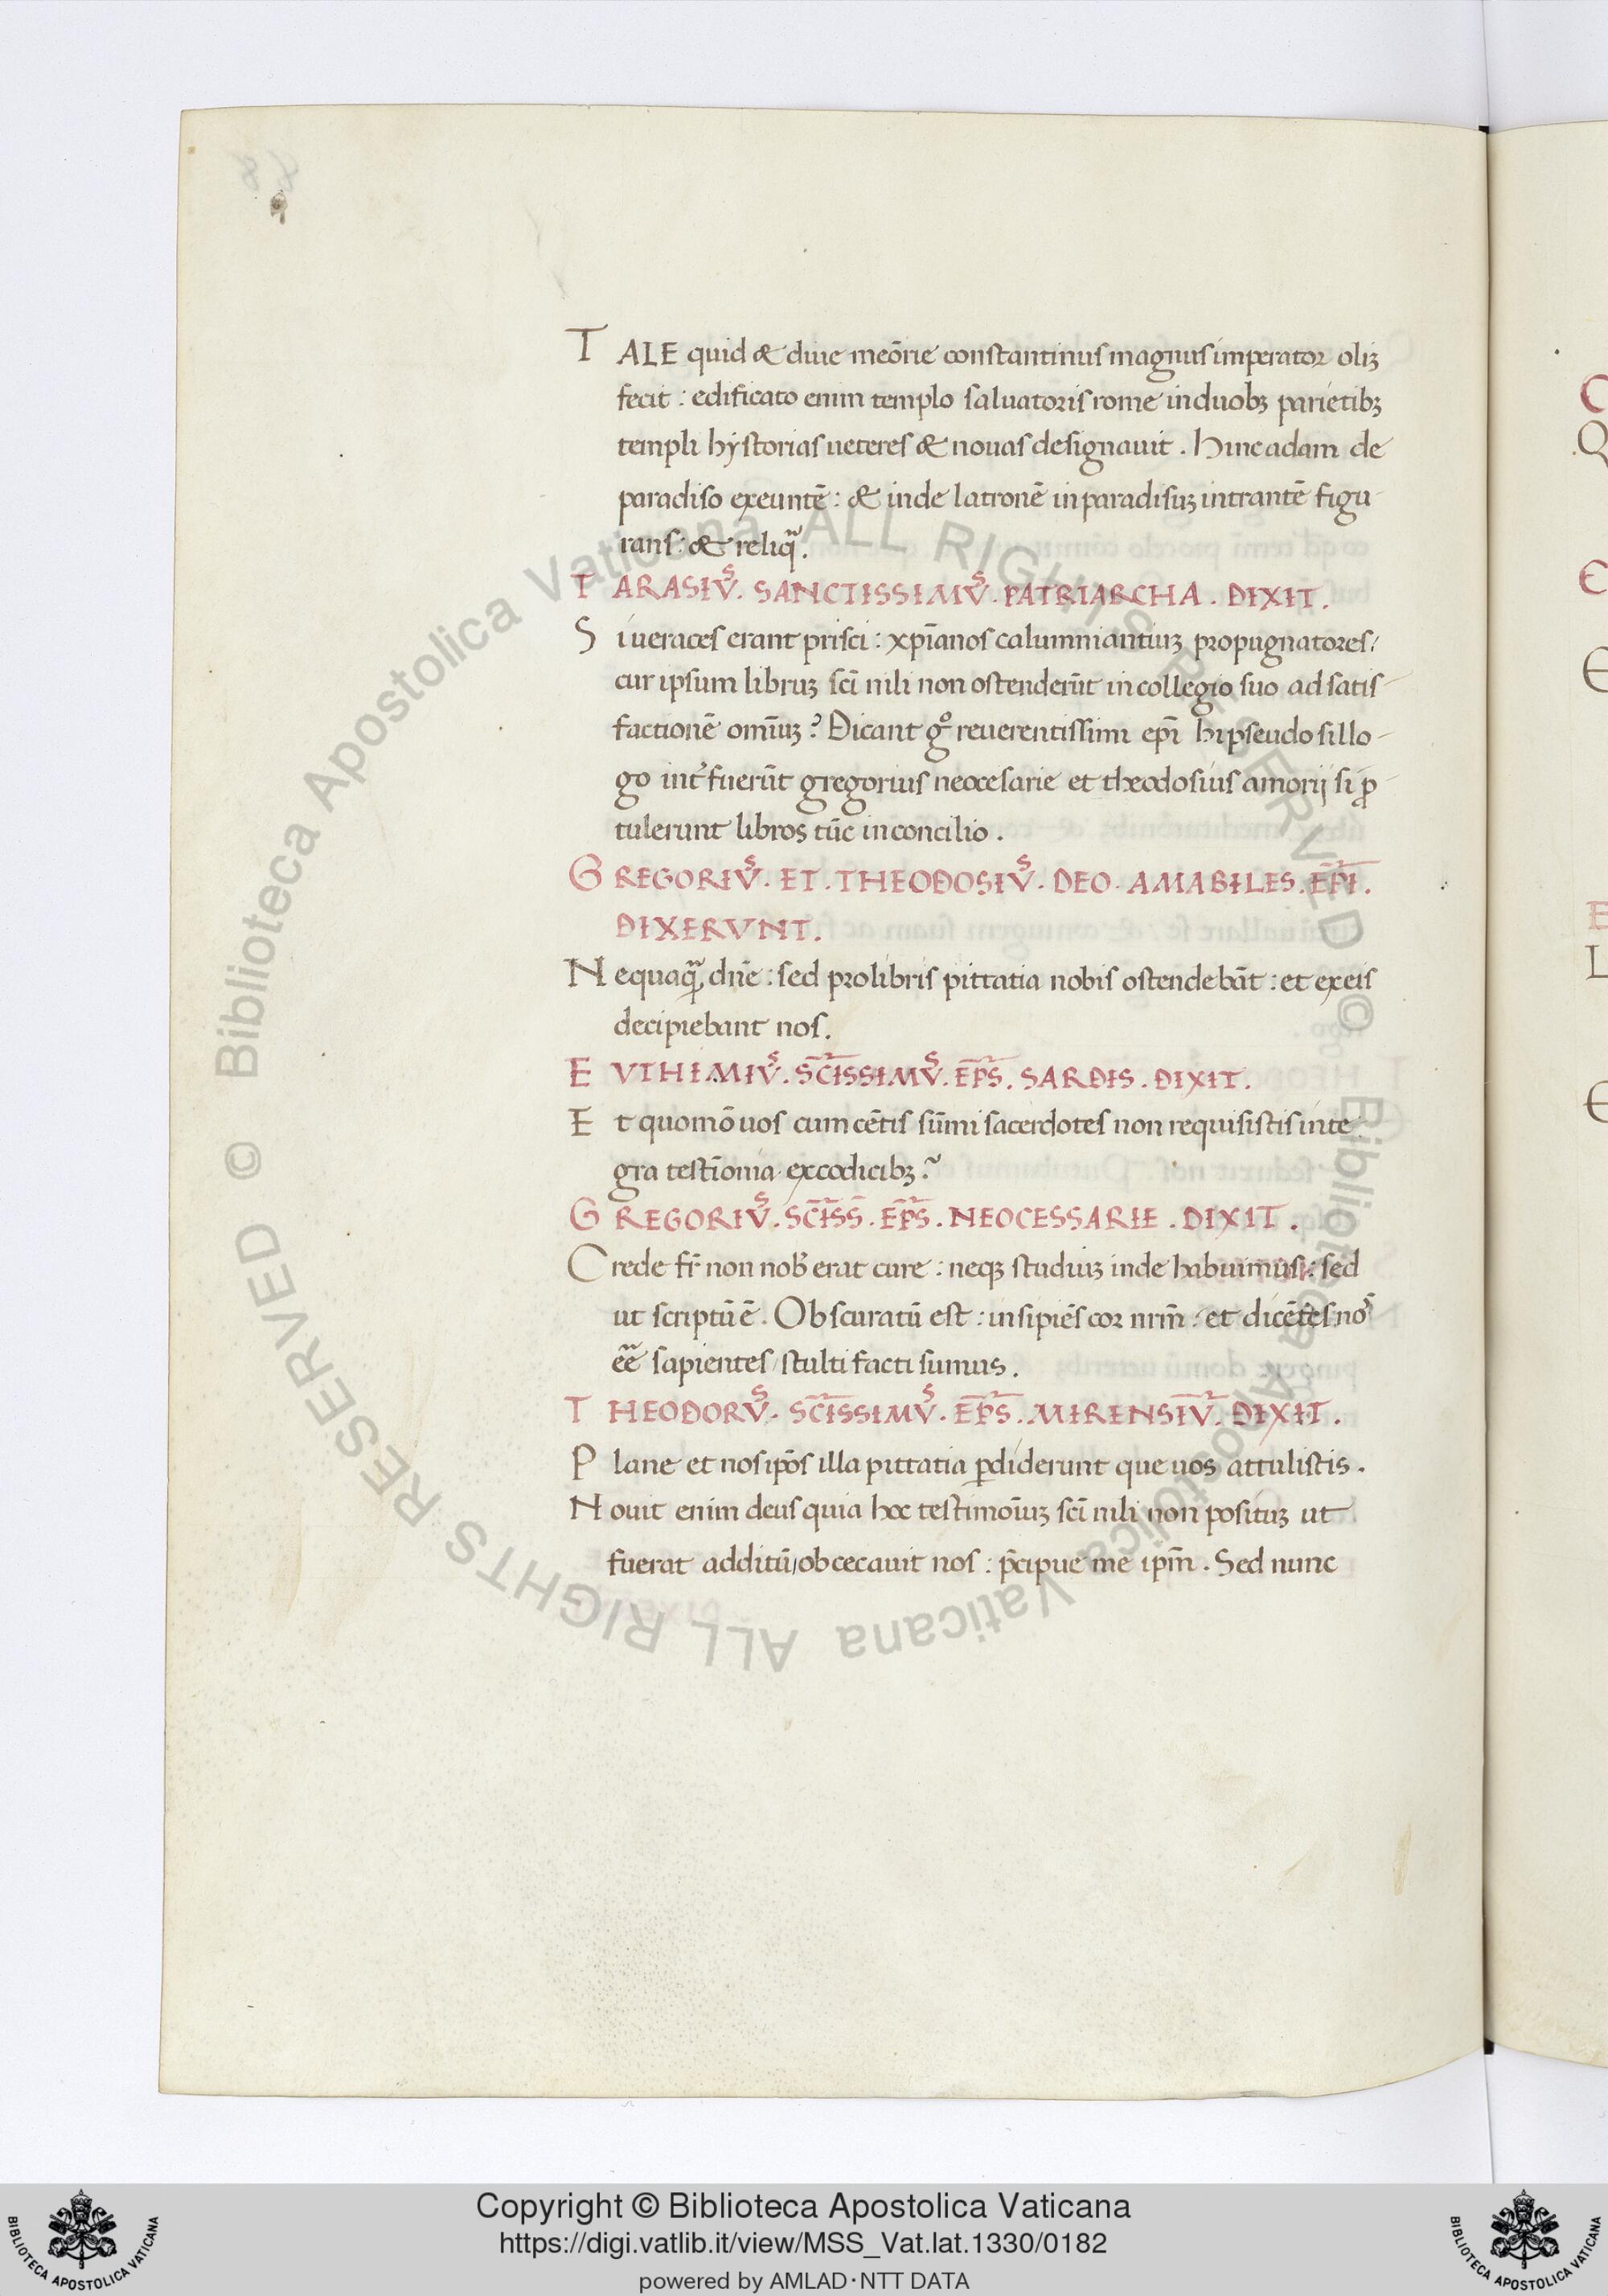 TALE quid & diuie meōrie constantinus magnus imperator oliꝫ
fecit : edificato enim templo saluatoris rome induobꝫ parietibꝫ
templi hẏstorias ueteres & nouas designauit . Hinc adam de
paradiso exeuntē : & inde latronē in paradisuꝫ intrantē figu
rans : & reliqᷓ .
TARASIVˢ . SANCTISSIMVˢ . PATRIARCHA . DIXIT .
Si ueraces erant prisci : xp̄ianos calumniantiuꝫ propugnatores :
cur ipsum libruꝫ sc̄i nili non ostenderūt in collegio suo ad satis-
factionē om̄iuꝫ ? Dicant gͦ reuerentissimi ep̄i hi pseudo sillo-
go int̓fuerūt gregorius neocesarie et theodosius amorij si ꝓ-
tulerunt libros tūc in concilio .
GREGORIVˢ . ET . THEODOSIVˢ . DEO . AMABILES . EP̄I .
DIXERVNT .
Nequaqᷓꝫ dn̄e : sed pro libris pittatia nobis ostendebāt : et ex eis
decipiebant nos .
EVTHIMIVˢ . SC̄ISSIMVˢ . EP̄S . SARDIS . DIXIT .
Et quomō uos cum cētis sūmi sacerdotes non requisistis inte
gra testīonia ex codicibꝫ ?
GREGORIVˢ . SC̄ISS̄ . EP̄S . NEOCESSARIE . DIXIT .
Crede fr̄ non nob̓ erat cure : neqꝫ studiuꝫ inde habuimus : sed
ut scriptū ē . Obscuratū est : insipiēs cor nr̄m : et dicētes no᷒
ēē sapientes / stulti facti sumus .
THEODORVˢ . SC̄ISSIMVˢ . EP̄S . MIRENSIV̄ . DIXIT .
Plane et nos ip̄os illa pittatia ꝑdiderunt que uos attulistis .
Nouit enim deus quia hoc testimōiuꝫ sc̄i nili non posituꝫ ut
fuerat additū / obcecauit nos : p̄cipue me ip̄m . Sed nunc
Copyright © Biblioteca Apostolica Vaticana
https://digi.vatlib.it/view/MSS_Vat.lat.1330/0182
powered by AMLAD·NTT DATA
© Biblioteca Apostolica Vaticana ALL RIGHTS RESERVED © Biblioteca Apostolica Vaticana ALL RIGHTS RESERVED
BIBLIOTECA APOSTOLICA VATICANA
BIBLIOTECA APOSTOLICA VATICANA